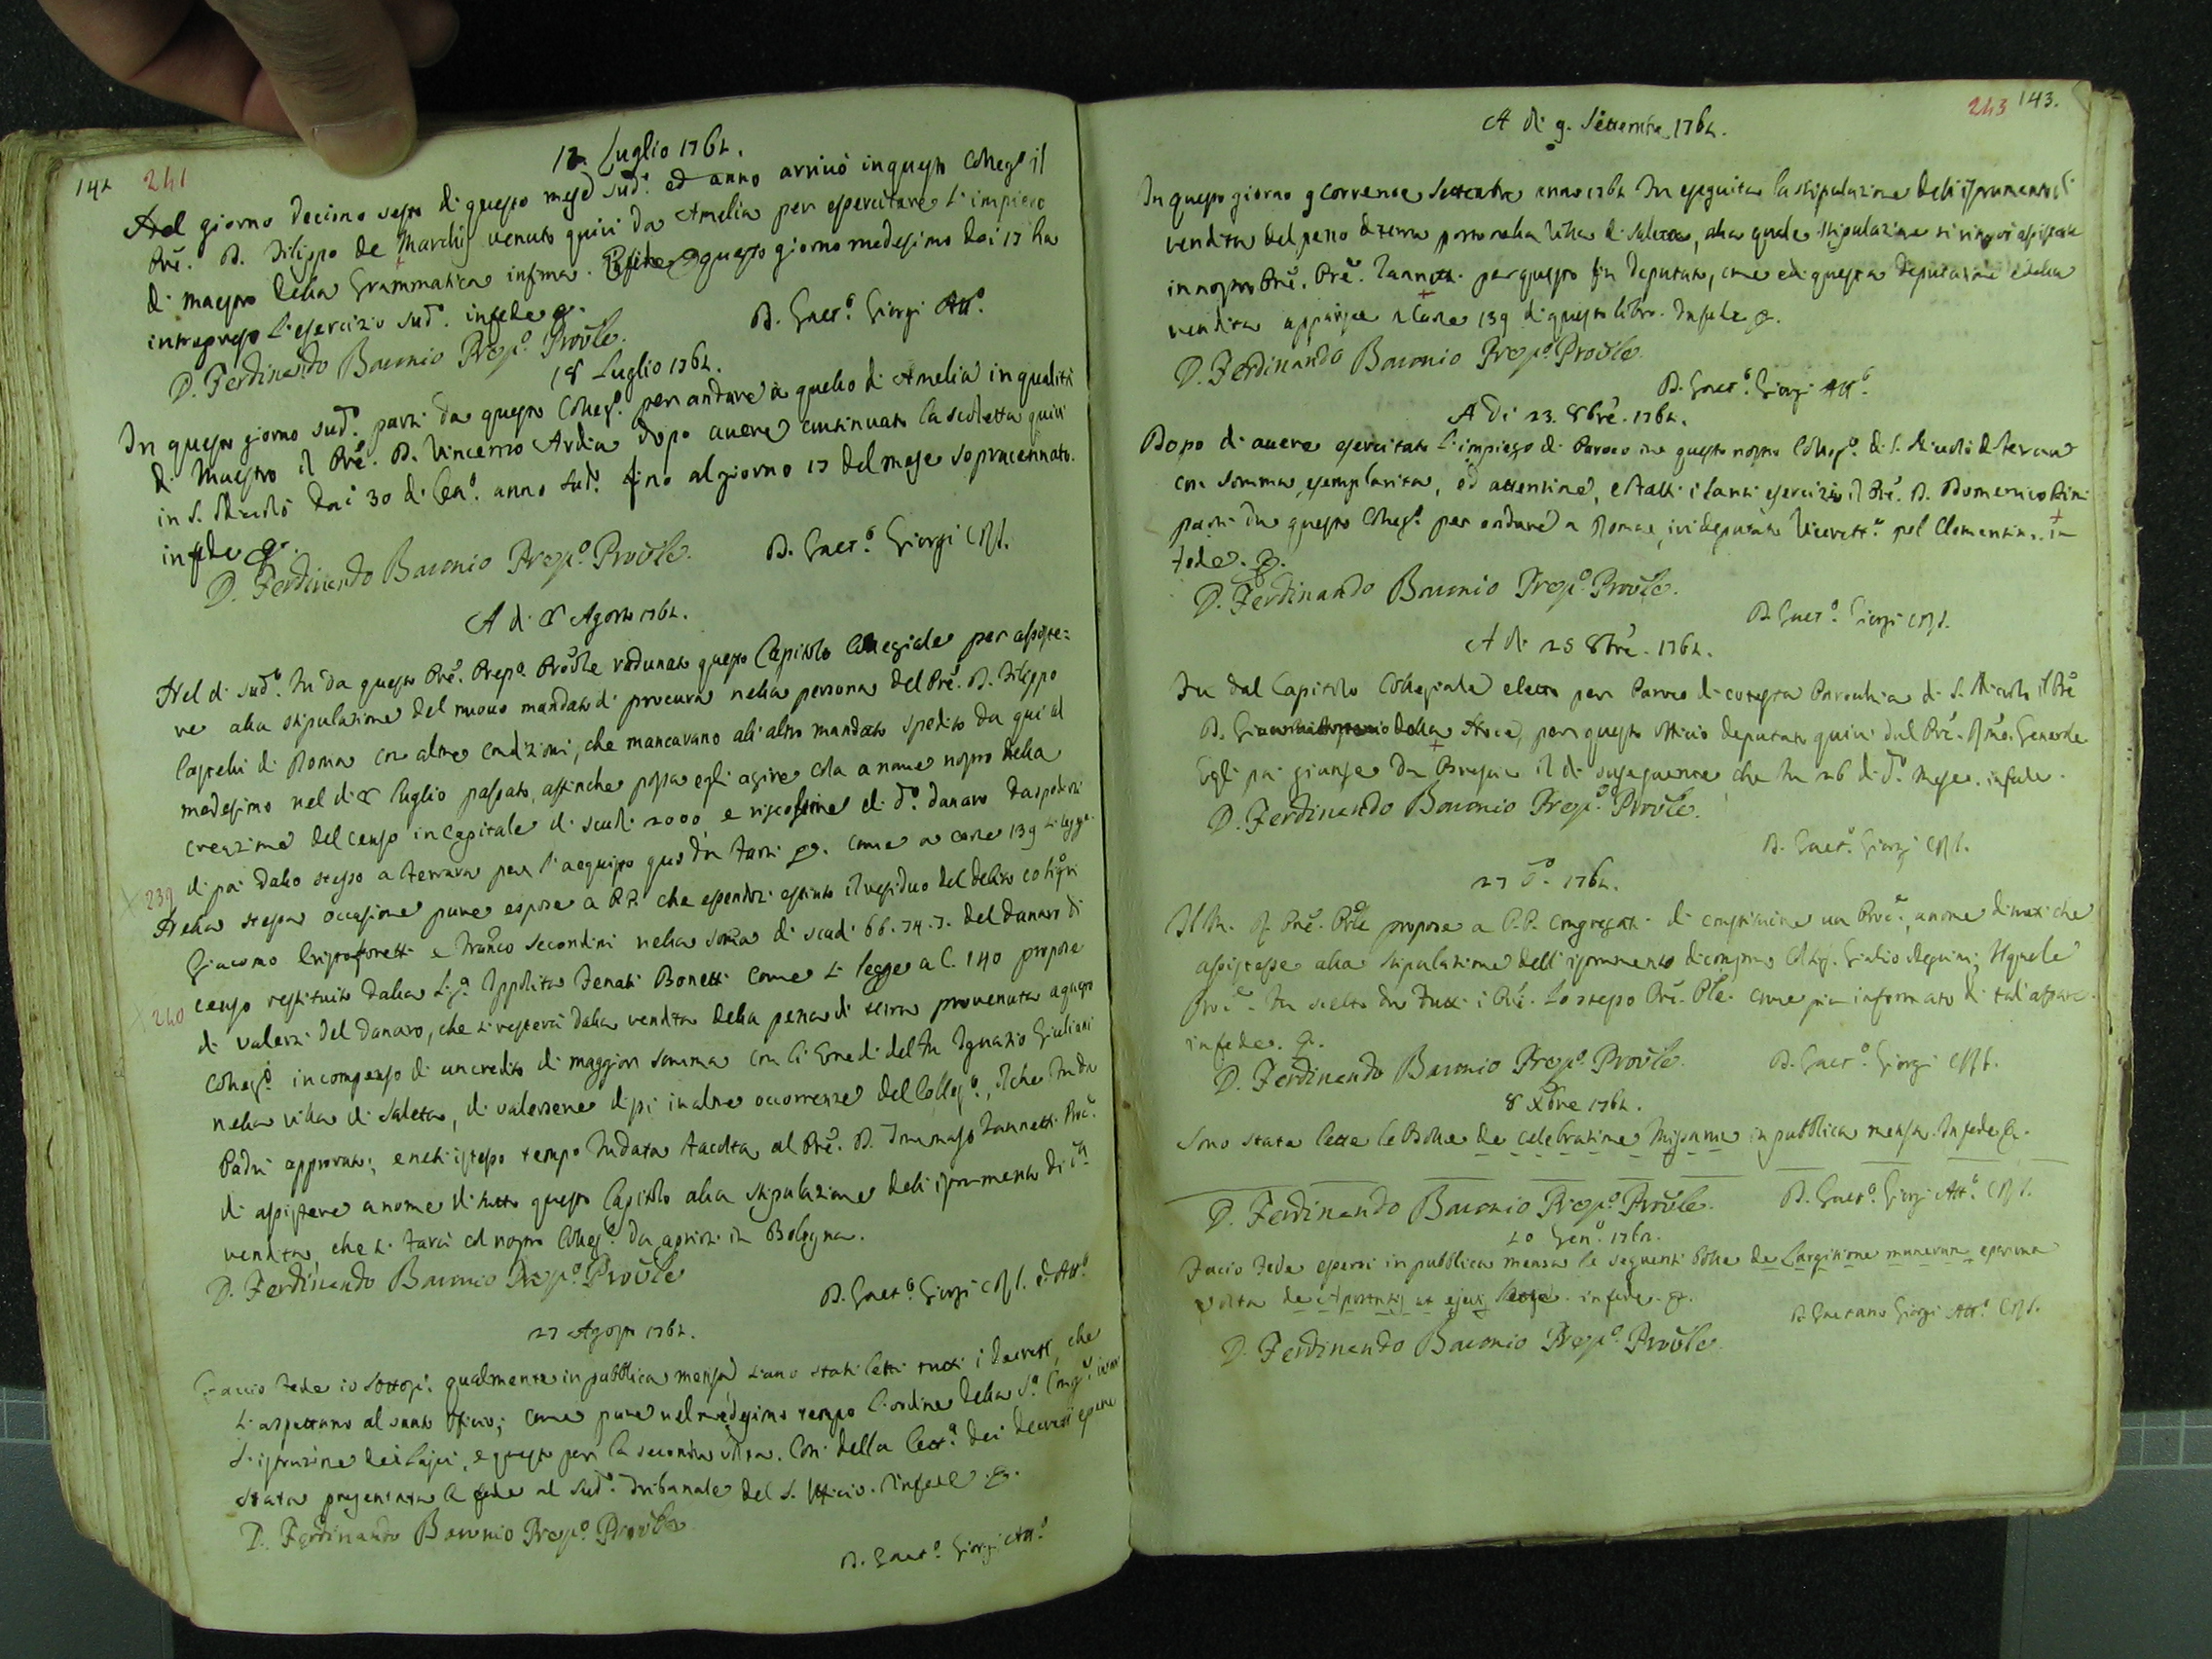 142 241
17 Luglio 1762.
Nel giorno decimo sesto di questo mese sud.o ed anno arrivò in questo Colleg.o il
Prě. D. Filippo de Marchis venuto quivi da Amelia per esercitare l'impiego
di maestro della Grammatica infima. questo giorno medesimo dei 17 ha
intrapreso l'esercizio sud.o in fede
D. Ferdinando Baronio Prep.o Proũle.
D. Gaet.o Giorgi Att.o
18 Luglio 1762.
In questo giorno sud.o partì da questo Colleg.o per andare a quello di Amelia in qualità
di Maestro il Prě. D. Vincenzo Ardia dopo avere continuato la scoletta quivi
in S. Nicolò dai 30 di Gen.o anno sud.o fino al giorno 17 del mese sopracennato.
in fede
D. Ferdinando Baronio Prep.o Proũle.
D. Gaet.o Giorgi CRS.
A di 8 Agosto 1762.
Nel di sud.o fu da questo Prě. Prep.o Proũle radunato questo Capitolo Collegiale per assiste=
re alla stipulazione del nuovo mandato di procura nella persona del Prě. D. Filippo
Castelli di Roma con altre condizioni, che mancavano all'altro mandato spedito da qui al
medesimo nel di 8 luglio passato, affinche possa egli agire cola a nome nostro della
creazione del censo in capitale di scudi 2000 e riscossione di d.o danaro da spedirsi
239 di poi dallo stesso a Ferrara per l'acquisto da farsi come a carte 139 si legge.
Nella stessa occasione pure espose a PP. che essendosi estinto il residuo del debito
Giacomo Cristoforetti e Franco Secondini nella soma di scudi 66. 74. 3. del danaro di
240 censo restituito dalla Sig.a Ippolita Fenati Bonetti come si legge a C. 140 propose
di valersi del danaro, che si resterà dalla vendita della pezza di terra provenuta a questo
Colleg.o in compenso di un credito di maggior somma con li Eredi del fu Ignazio Giuliani
nella villa di Saletta, di valersene di poi in altre occorrenze del Colleg.o, il che fu da
Padri approvato; e nell'istesso tempo fu data facoltà al Prě. D. Tommaso Zannetti Proc.
di assistere a nome di tutto questo Capitolo alla stipulazione dell'istrumento di
vendita, che si farà col nostro Colleg.o da aprirsi in Bologna.
D. Ferdinando Baronio Prep.o Proũle
D. Gaet.o Giorgi CRS. ed Att.o
27 Agosto 1762.
Faccio fede io sottos. qualmente in pubblica mensa siano stati letti tutti i decreti, che
si aspettano al santo Officio; come pure nel medesimo tempo l'ordine della S.a Cong.
l'istruzione dei laici, e questo per la seconda volta. Con della lett.a dei decreti
stata presentata la fede al sud.o Tribunale del S. Officio. In fede
D. Ferdinando Baronio Prep.o Proũle
D. Gaet.o Giorgi Att.o
243 143.
A di 9. Settembre 1762.
In questo giorno 9 corrente Settembre anno 1762 fu eseguita la stipulazione dell'istrumento di
vendita del pezzo di terra posto nella Villa di Saletta, alla quale stipulazione
in nostro Prě. Prě. Zannetti per questo fin deputato, come ed questa deputazione e della
vendita apparisce a Carte 139 di questo libro. In fede
D. Ferdinando Baronio Prep.o Proũle.
D. Gaet.o Giorgi Att.o
A di 23. 8bré. 1762.
Dopo di avere esercitato l'impiego di Paroco in questo nostro Colleg.o di S. Nicolò di Ferrara
con somma esemplarità, ed attenzione, e fatti i santi esercizi il Prě. D. Domenico
partì da questo Colleg.o per andare a Roma, ivi deputato Vicerett.e nel Clementin. in
fede.
D. Ferdinando Baronio Prep.o Proũle.
D. Gaet.o Giorgi CRS.
A di 25 8bré. 1762.
Fu dal Capitolo Collegiale eletto per Paroco di cotesta Parochia di S. Nicolò il Prě
D. della Noce, per questo officio deputato quivi dal Prě. Rmo. Generale
Egli poi giunse da Brescia il di susseguente che fu 26 di d.o Mese. in fede.
D. Ferdinando Baronio Prep.o Proũle.
D. Gaet.o Giorgi CRS.
27 d.o 1762.
Il M. R. Prě. Prle propose a P.P. congregati di constituire un Proc.e, a nome di noti che
assistesse alla stipulazione dell'istrumento di Giulio Il quale
Proc.e fu scelto da tutti i Prě. lo stesso Prě. Ple. come piu informato di tal affare.
in fede.
D. Ferdinando Baronio Prep.o Proũle.
D. Gaet.o Giorgi CRS.
8 Xbre 1762.
Sono state lette le Bolle de celebratione Missarum in pubblica mensa. In fede
D. Ferdinando Baronio Prep.o Proũle.
D. Gaet.o Giorgi Att.o CRS.
Gen.o
Faccio fede essersi in pubblica mensa le seguenti Bolle de Largitione munerum
volta de Apostatis et ejectis lette. in fede.
D. Gaetano Giorgi Att.o CRS.
D. Ferdinando Baronio Prep.o Proũle.